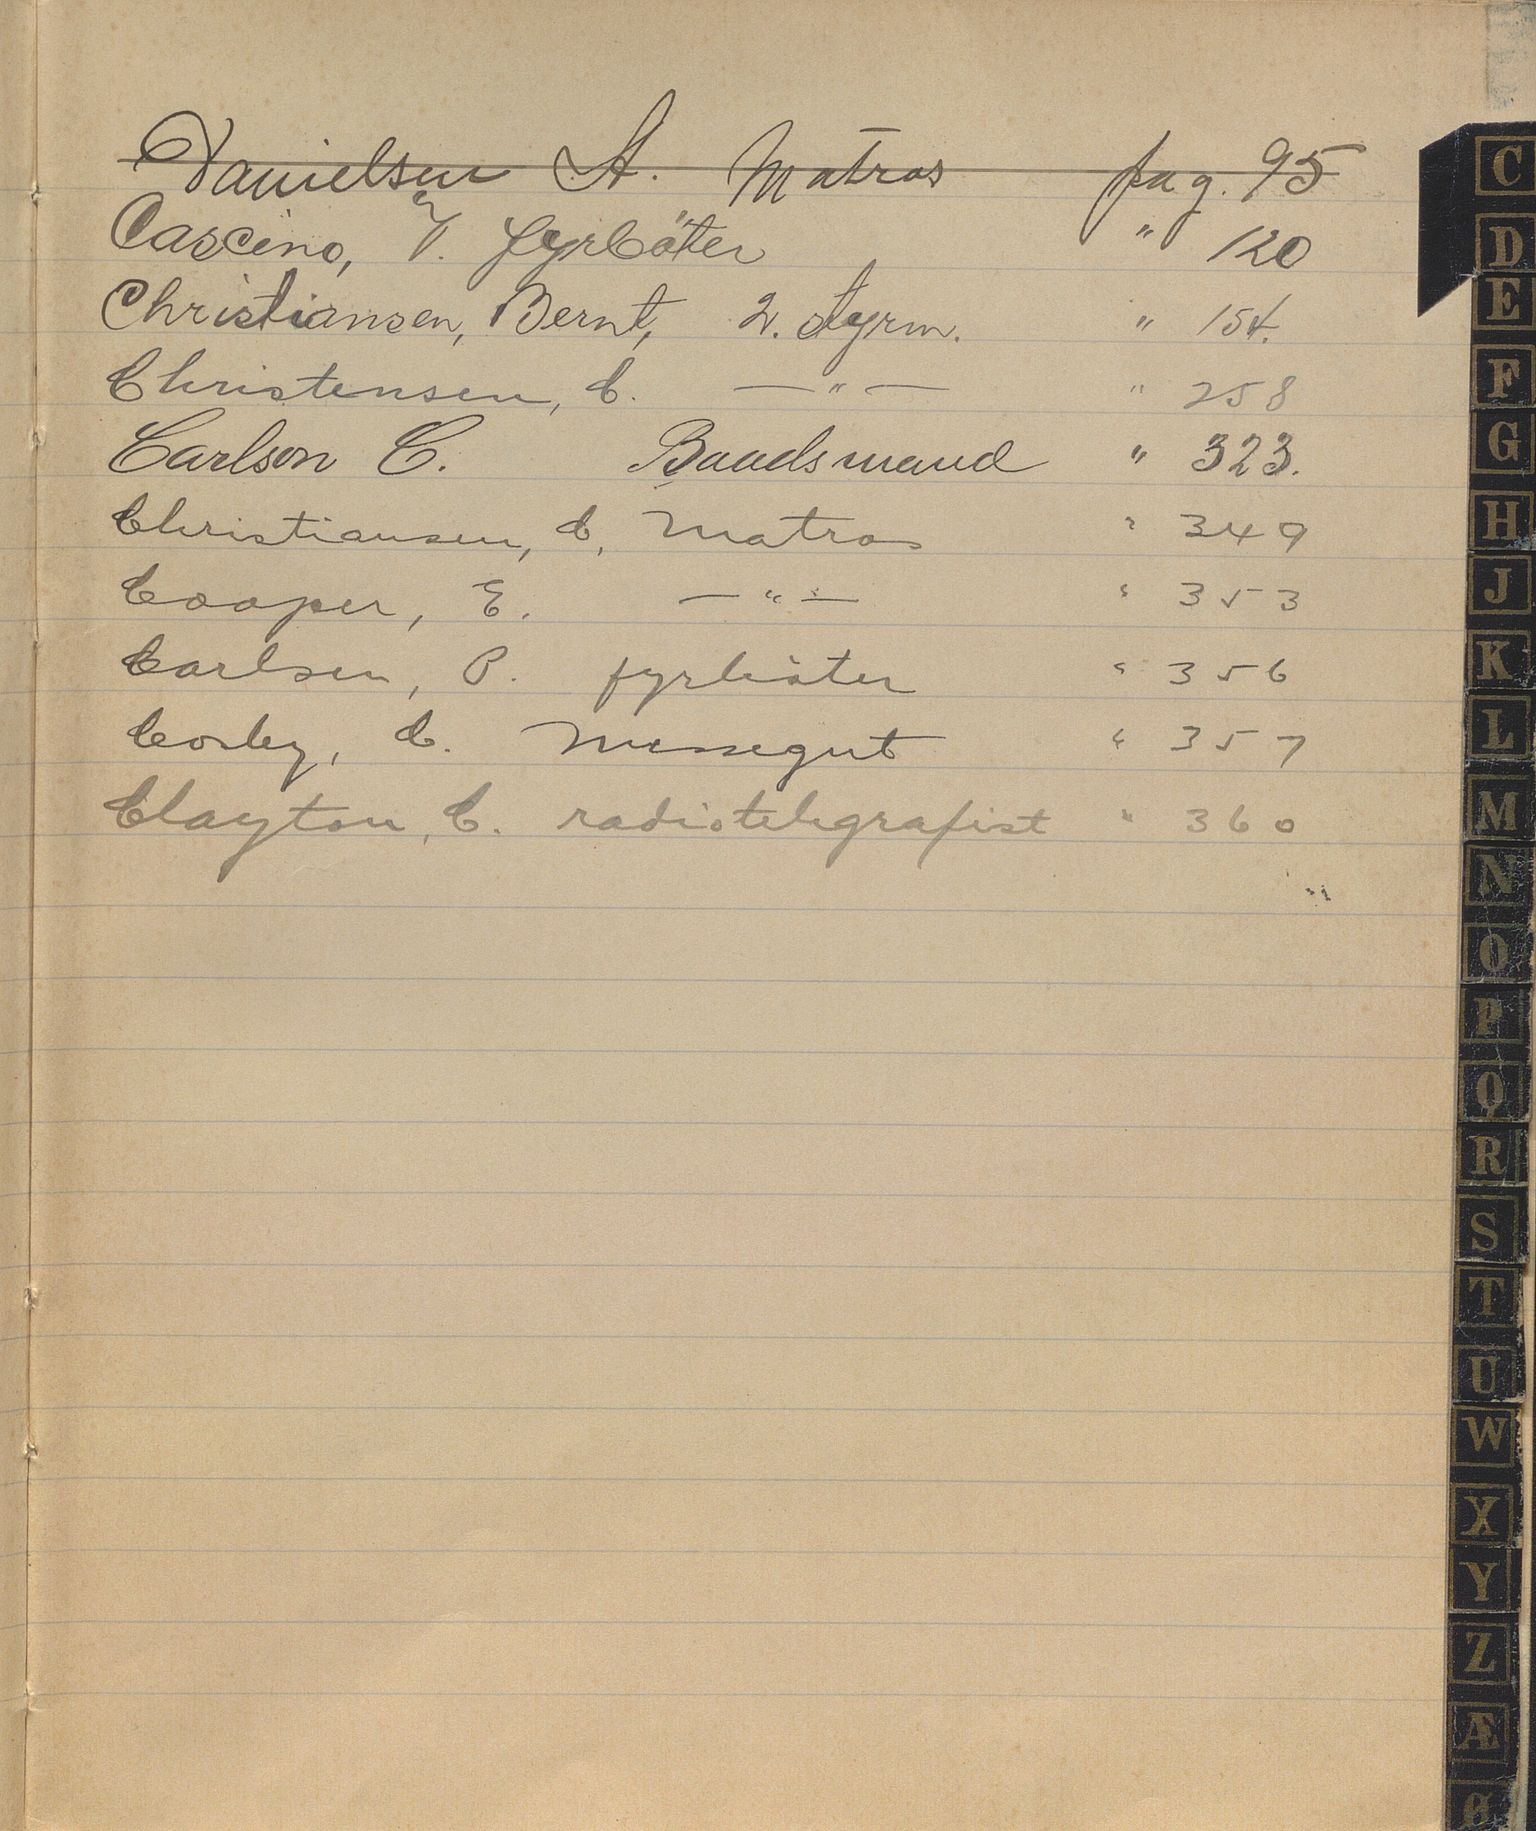 Danielsen A. Matros pag. 95
Cascino, T. fyrböter " 120
Christiansen, Bernt, 2. Styrm. " 154.
Christensen, C. — " — " 258
Carlson C. Baadsmand " 323.
Christiansen, C, Matros " 349
Cooper, E. — " — " 353
Carlsen, P. fyrböter " 356
Cosby, C. Messegut " 357
Clayton, C. radiotelegrafist " 360
C
D
E
F
G
H
J
K
L
M
N
O
P
Q
R
S
T
U
W
X
Y
Z
Æ
Ø